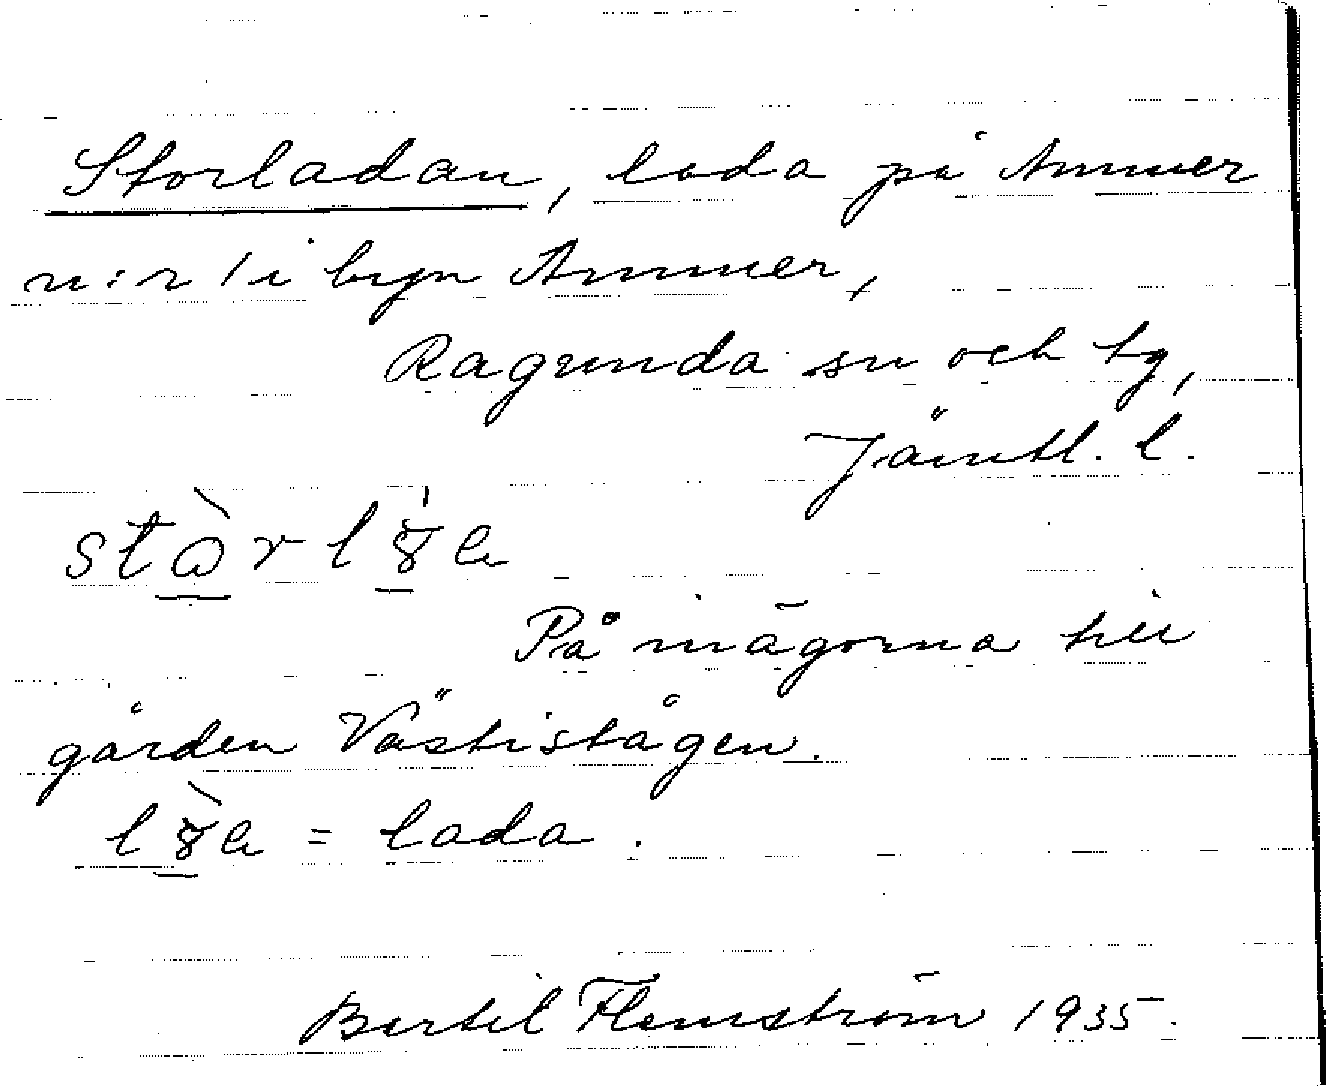 Storladan, lada på Ammer
n:r 1 i byn Ammer,
Ragunda sn och tg,
Jämtl. l.
På inägorna till
gården Västistågen.
= lada.
Bertil Flemström 1935.